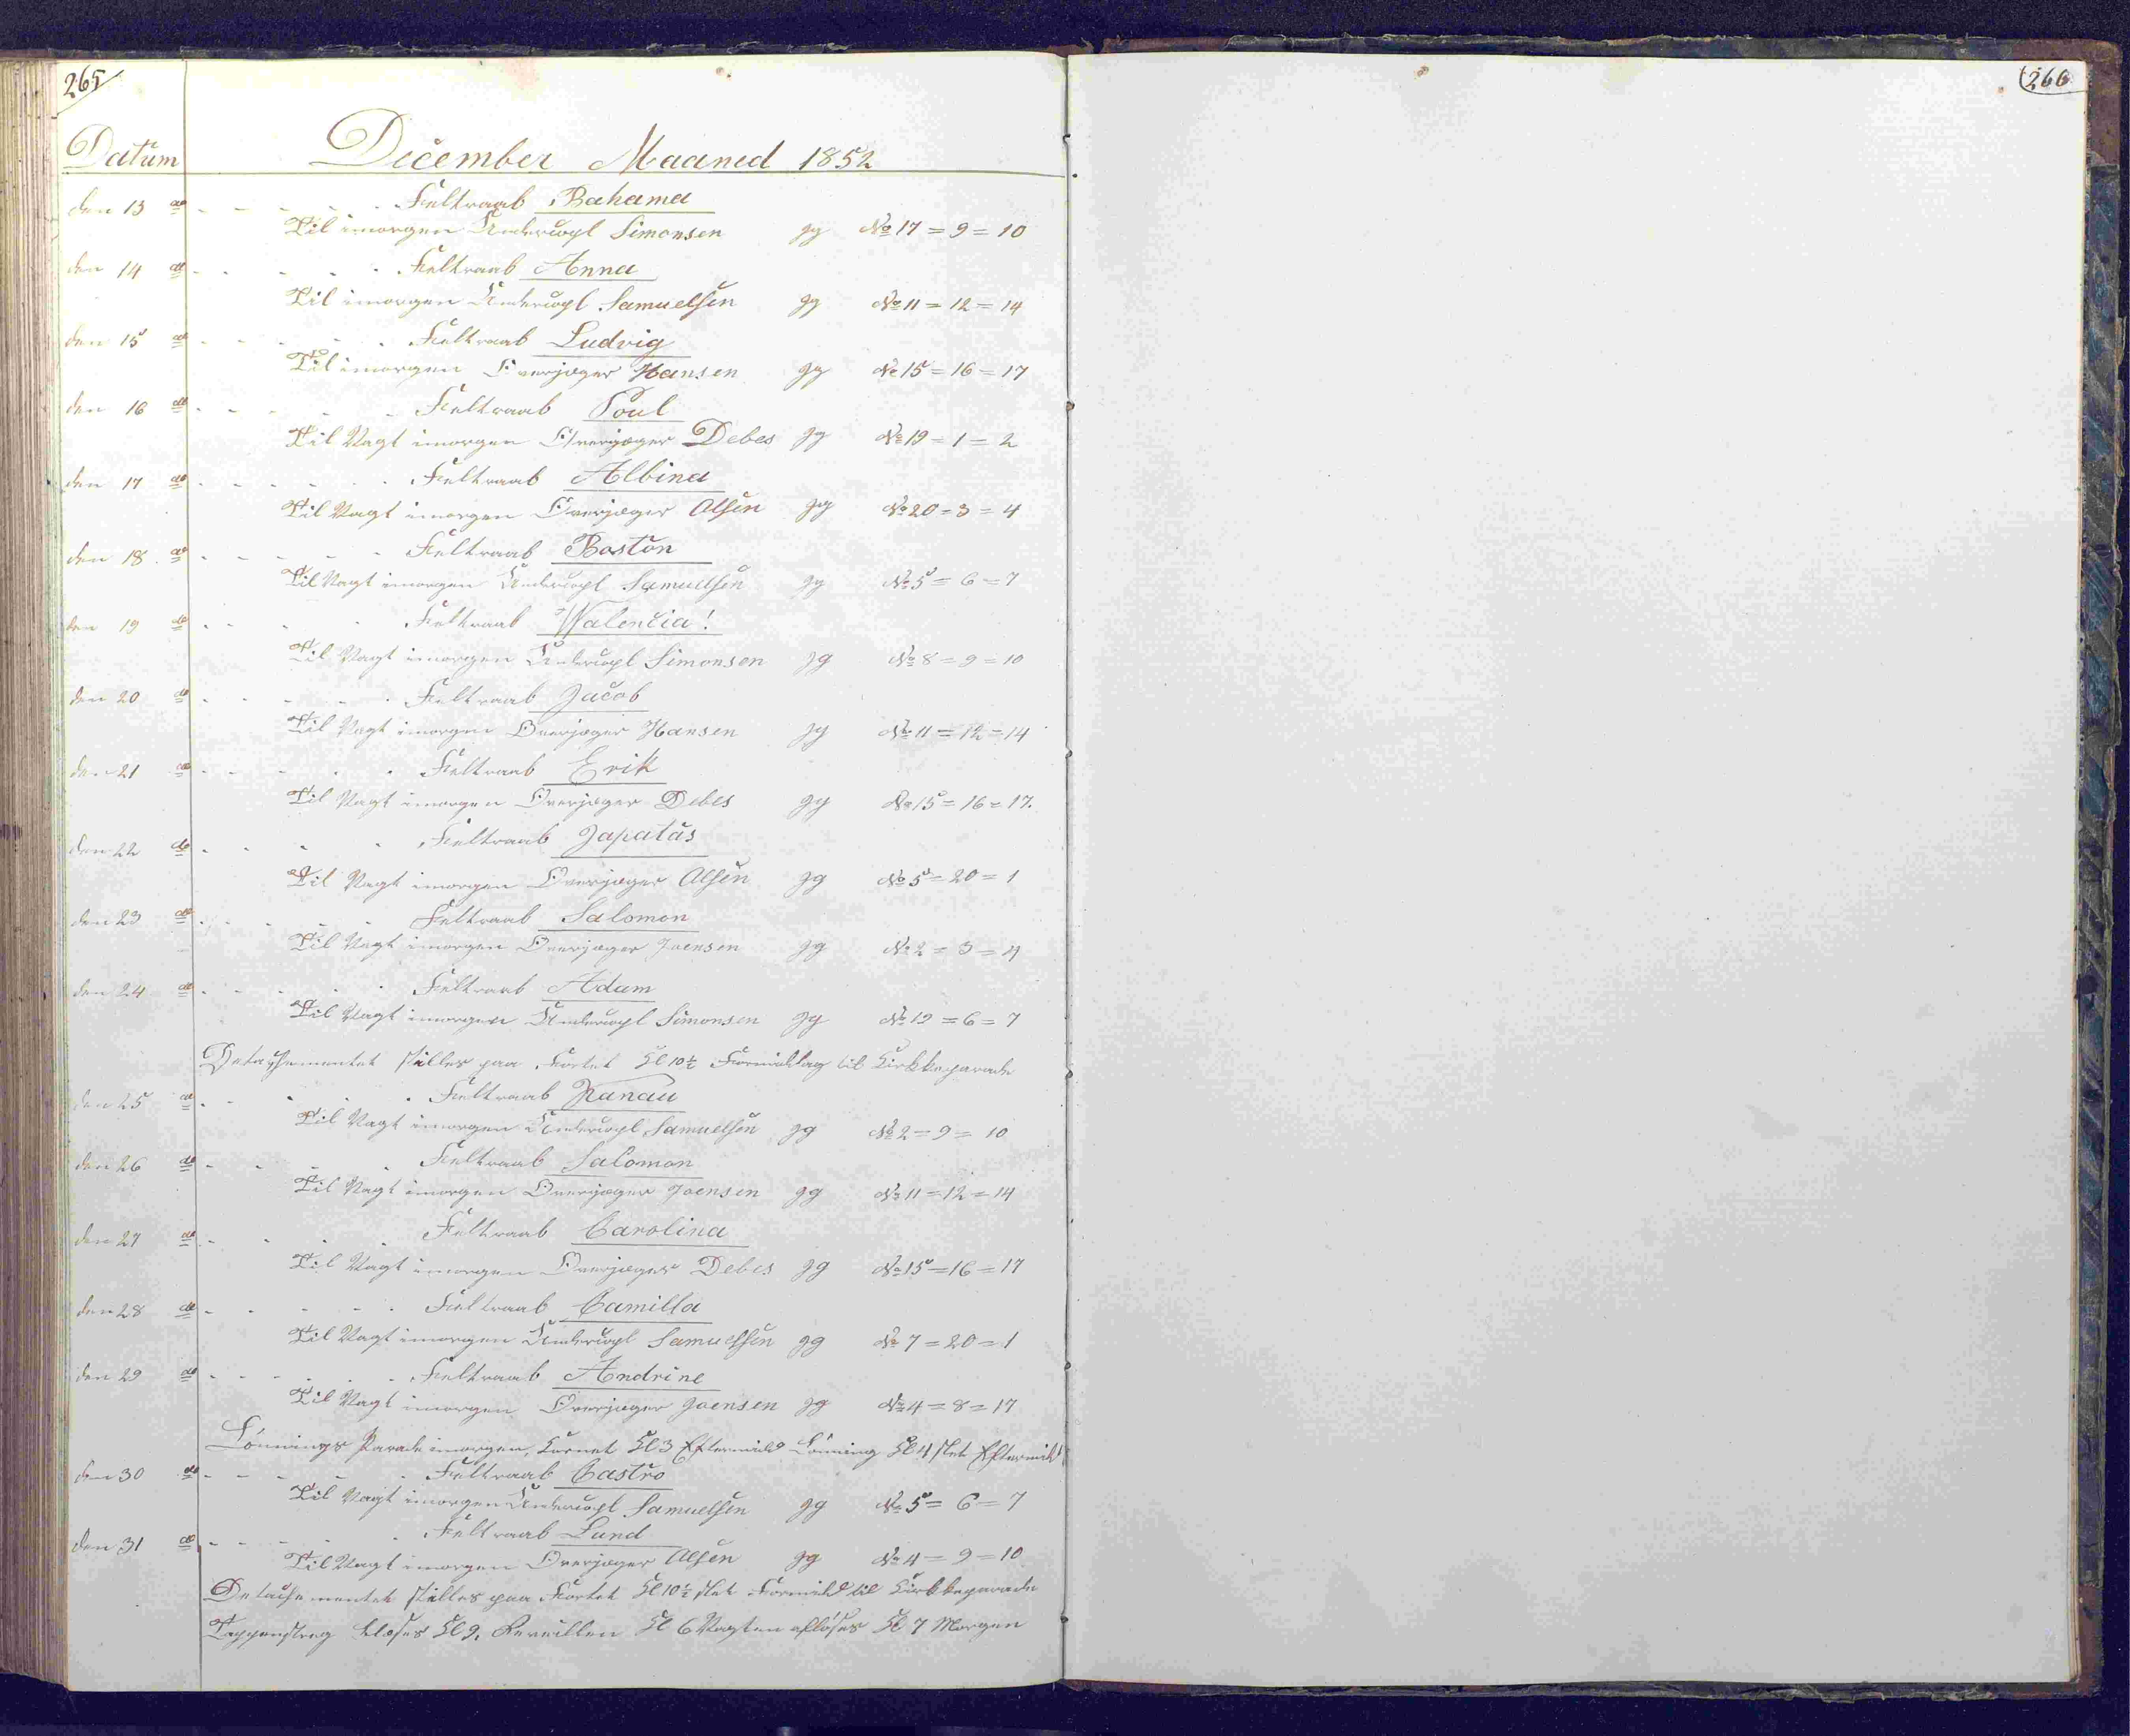 265
266
Datum December Maaned 1852
den 13 do - - - - - Feltraab Bahama
Til imorgen Undercopl Simonsen Jg No 17 = 9 = 10
den 14 do - - - - - Feltraab Anna
Til imorgen Undercopl Samuelsen Jg No 11 = 12 = 14
den 15 do - - - - - Feltraab Ludvig
Til imorgen Overjæger Hansen Jg No 15 = 16 = 17
den 16 do - - - - - Feltraab Poul
Til Vagt imorgen Overjæger Debes Jg No 19 = 1 = 2
den 17 do - - - - - Feltraab Albina
Til Vagt imorgen Overjæger Olsen Jg No 20 = 3 = 4
den 18 do - - - - - Feltraab Boston
Til Vagt imorgen Undercopl Samuelsen Jg No 5 = 6 = 7
den 19 do - - - - Feltraab Walencia!
Til Vagt imorgen Undercopl Simonsen Jg No 8 = 9 = 10
den 20 do - - - - - Feltraab Jacob
Til Vagt imorgen Overjæger Hansen Jg No 11 = 12 = 14
den 21 do - - - - - Feltraab Erik
Til Vagt imorgen Overjæger Debes Jg No 15 = 16 = 17.
den 22 do - - - - Feltraab Japatus
Til Vagt imorgen Overjæger Olsen Jg No 5 = 20 = 1
den 23 do - - - - - Feltraab Salomon
Til Vagt imorgen Overjæger Joensen Jg No 2 = 3 = 4
den 24 do - - - - - Feltraab Adam
Til Vagt imorgen Undercopl Simonsen Jg No 19 = 6 = 7
Detachementet stilles paa Fortet Kl 10½ Formiddag til Kirkeparade
den 25 do - - - - Feltraab Kanau
Til Vagt imorgen Undercopl Samuelsen Jg No 2 = 9 = 10
den 26 do - - - - Feltraab Salomon
Til Vagt imorgen Overjæger Joensen Jg No 11 = 12 = 14
den 27 do - - - - Feltraab Carolina
Til Vagt imorgen Overjæger Debes Jg No 15 = 16 = 17
den 28 do - - - - - Feltraab Camilla
Til Vagt imorgen Undercopl Samuelsen Jg No 7 = 20 = 1
den 29 do - - - - - Feltraab Andrine
Til Vagt imorgen Overjæger Joensen Jg No 4 = 8 = 17
Lønnings Parade imorgen, Kl 3 Eftermidd Lønning Kl 4 slet Eftermidd
den 30 do - - - - - Feltraab Castro
Til Vagt imorgen Undercopl Samuelsen Jg No 5 = 6 = 7
den 31 do - - - - - Feltraab Lund
Til Vagt imorgen Overjæger Olsen Jg No 4 = 9 = 10
Detachementet stilles paa Fortet Kl 10½ slet Formidd til Kirkeparade
Tappenstreg blæses Kl 9, Reveillen Kl 6 Vagten afløses Kl 7 Morgen